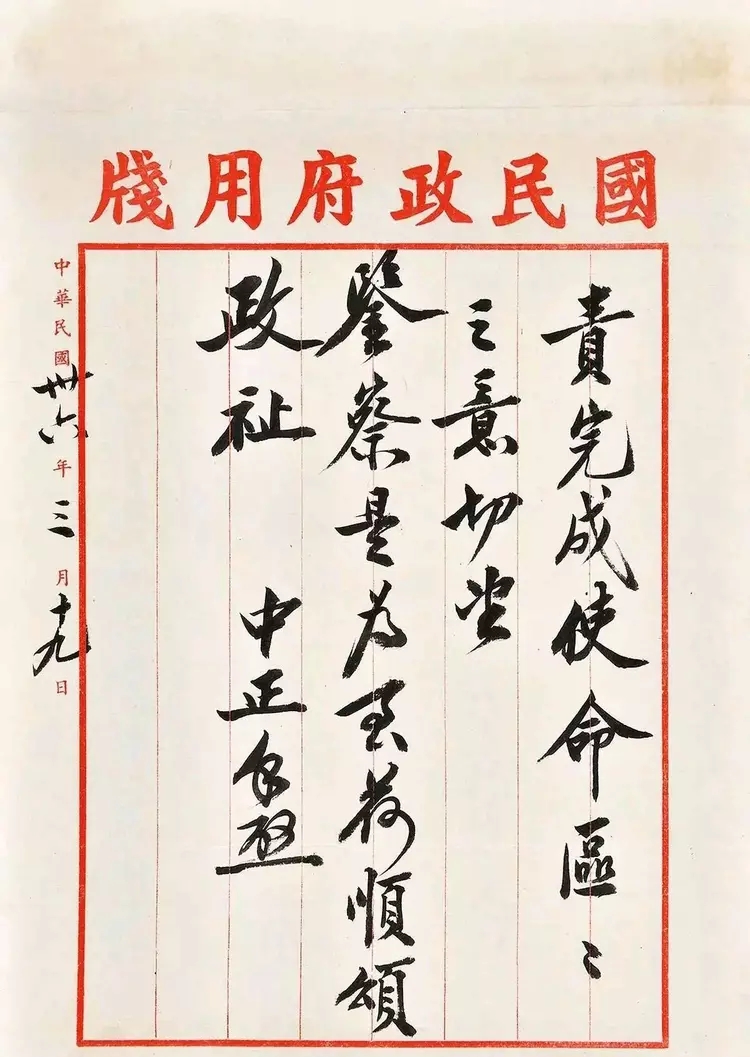 國民政府用牋
責完成使命區〻
之意切望
鑒察是為至荷順頌
政祉 中正手啟
中華民國卅六年三月十九日